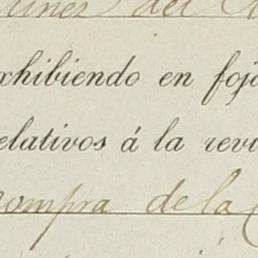 del
xhibiendo en foja
elativos á la revi
compra de la C